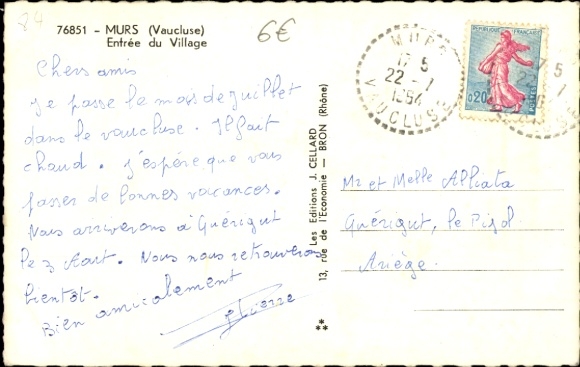 84
76851 - MURS (Vaucluse)
Entrée du Village
6€
Chers amis
Je passe le mois de juillet
dans le vaucluse. Il fait
chaud. J'espère que vous
passez de bonnes vacances.
Nous arriverons à Quérigut
le 3 Aout. Nous nous retrouverons
bientôt.
Bien amicalement
Pierre
Les Editions J. CELLARD
13, rue de l'Economie - BRON (Rhône)
MURS
17 5
22 - 7
1964
VAUCLUSE
REPUBLIQUE FRANÇAISE
0,20
POSTES
Mr et Melle Alliata
Quérigut, le Pla
Ariège.